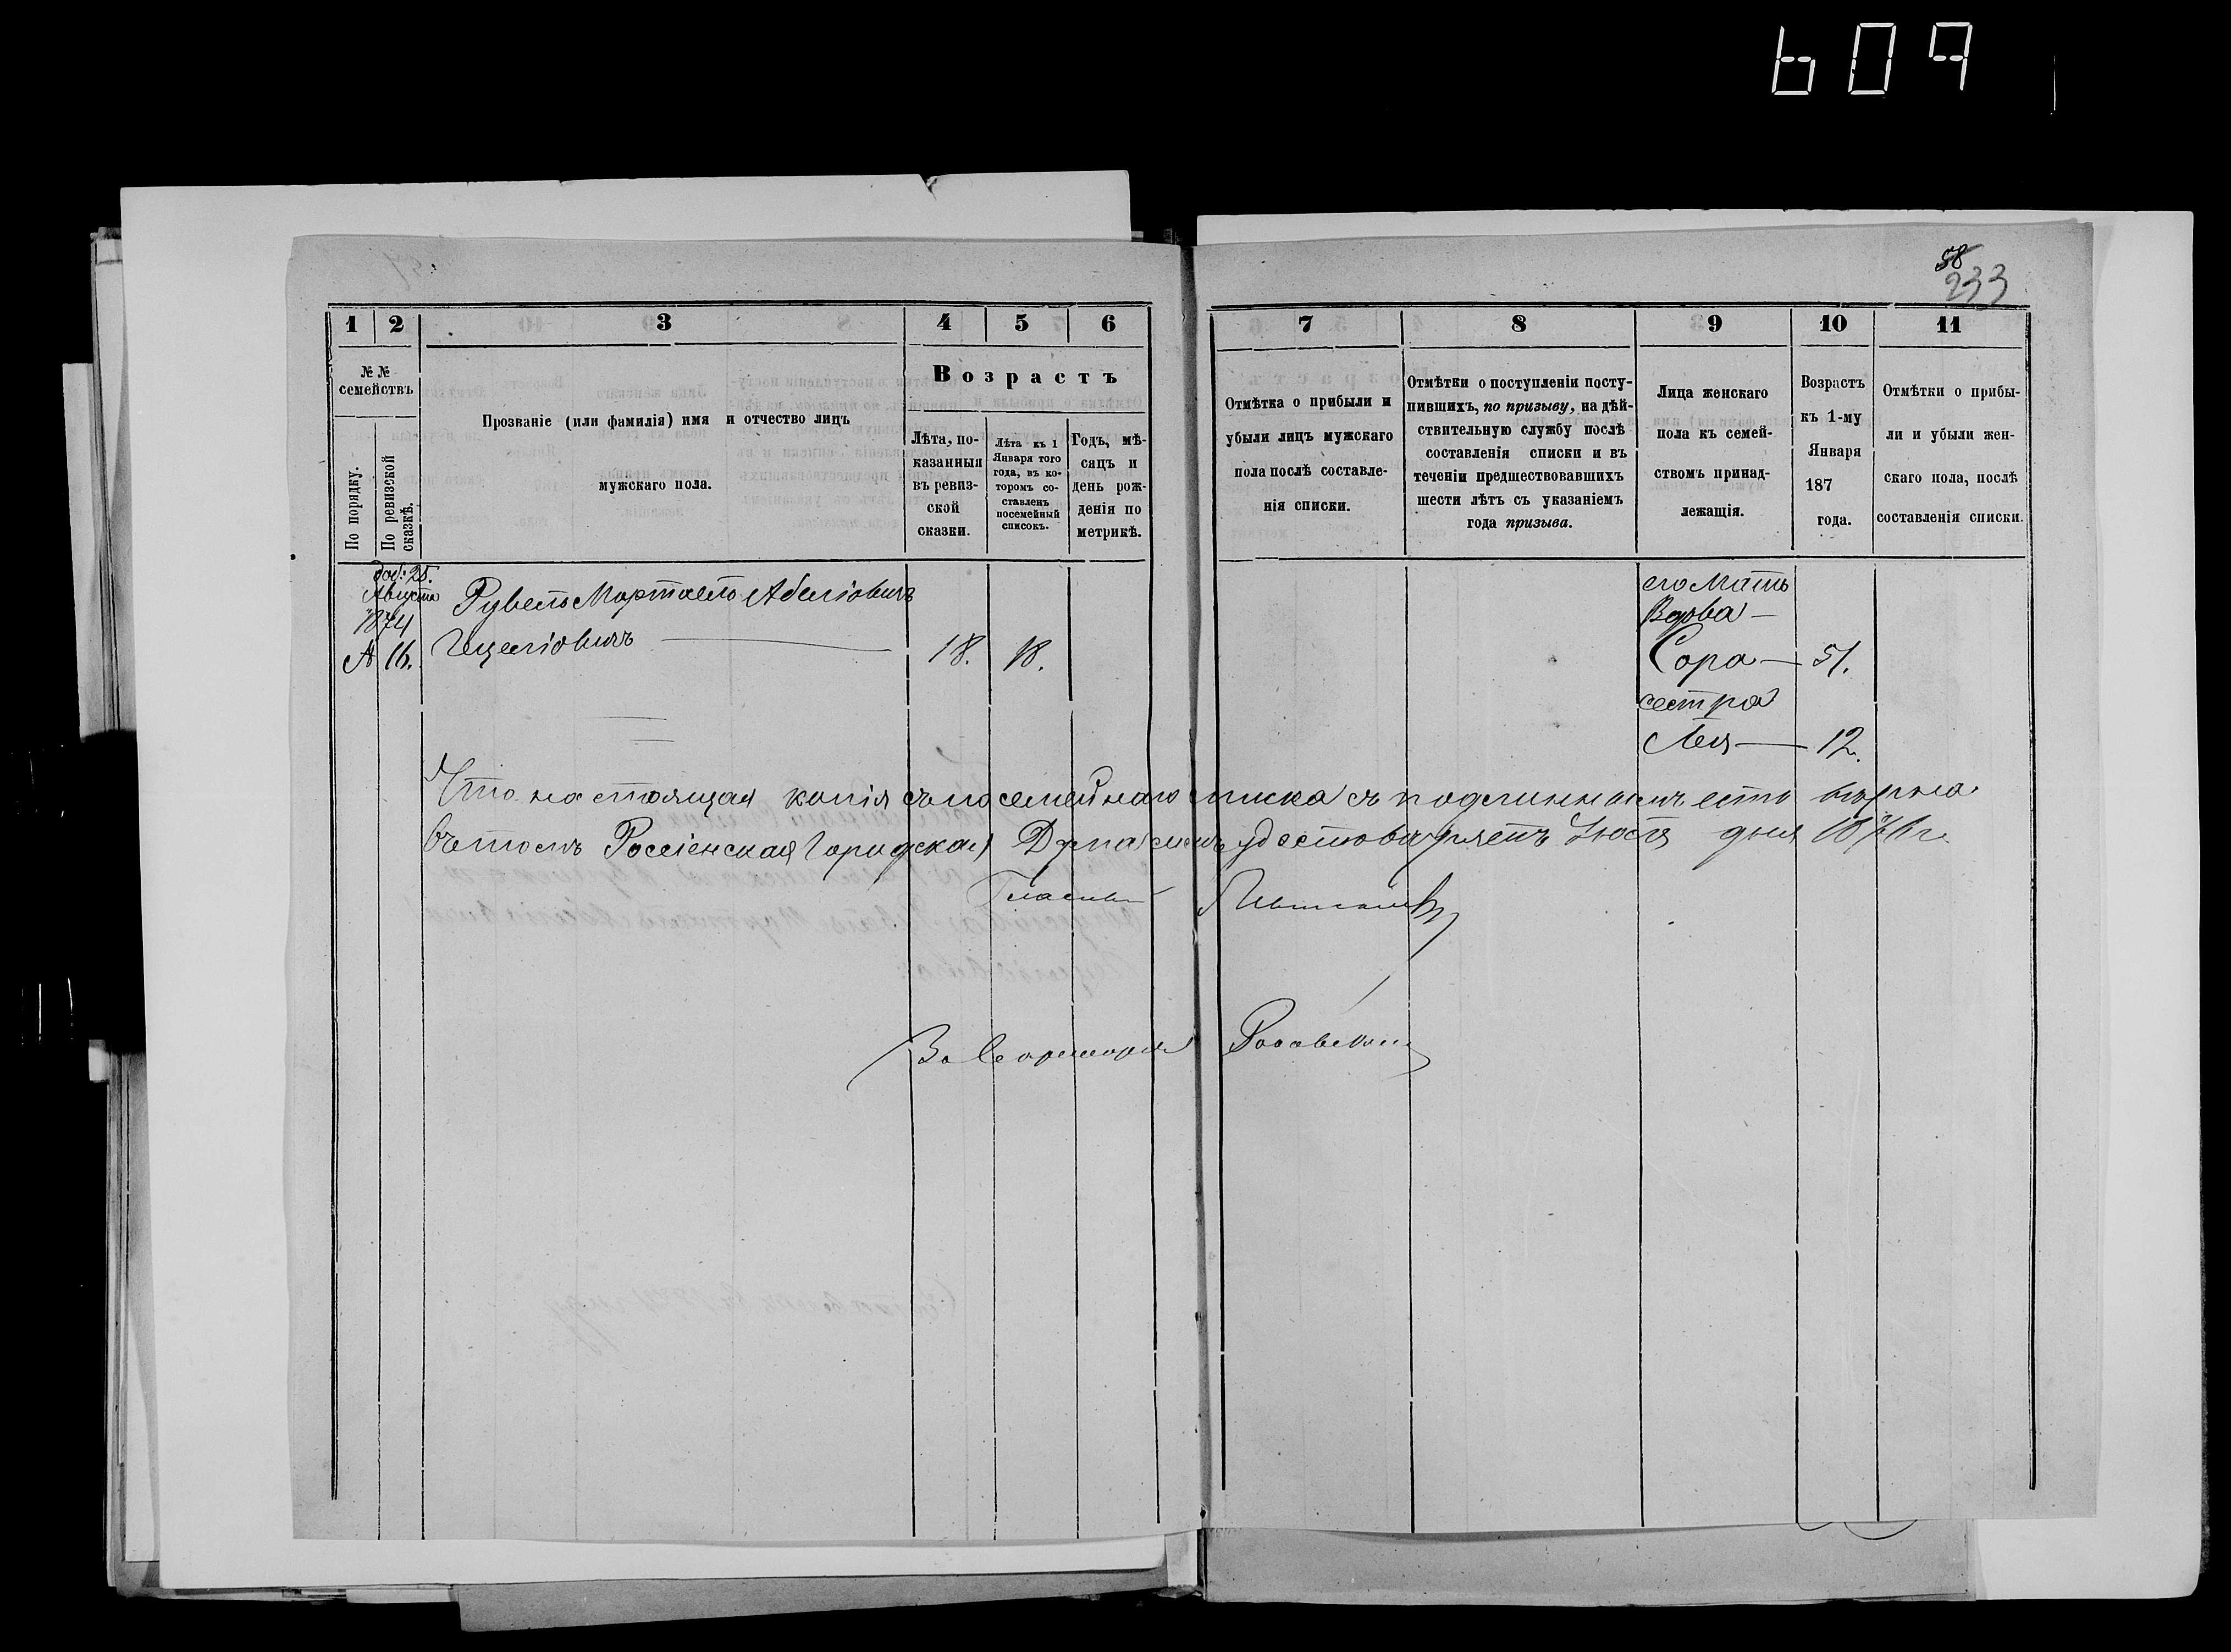 609
58
233
1 2 3 4 5 6
№ № семействъ
По порядку.
По ревизской сказкѣ.
Прозваніе (или фамилія) имя и отчество лицъ
мужскаго пола.
Возрастъ
Лѣта, по-
казанныя
въ ревиз-
ской
сказки.
Лѣта къ 1
Января того
года, въ ко-
торомъ со-
ставленъ
посемейный
списокъ.
Годъ, мѣ-
сяцъ и
день рож-
денія по
метрикѣ.
7 8 9 10 11
Отмѣтка о прибыли и
убыли лицъ мужскаго
пола послѣ составле-
нія списки.
Отмѣтки о поступленіи посту-
пившихъ, по призыву, на дѣй-
ствительную службу послѣ
составленія списки и въ
теченіи предшествовавшихъ
шести лѣтъ съ указаніемъ
года призыва.
Лица женскаго
пола къ семей-
ствомъ принад-
лежащія.
Возрастъ
къ 1-му
Января
187
года.
Отмѣтки о прибы-
ли и убыли жен-
скаго пола, послѣ
составленія списки.
доб: 25.
Августа
1874
А 16.
Рувель Мортхель Абеліовичъ
Гецеліовичъ 18. 18.
его Мать
Вдова
Сора 51.
сестра
Лея 12.
Что настоящая копія съ посемейнаго списка съ подлиннымъ есть вѣрна
въ томъ Россіенская Городская Дума удостовѣряетъ Іюля дня 1876 г.
Гласный
За Секретаря